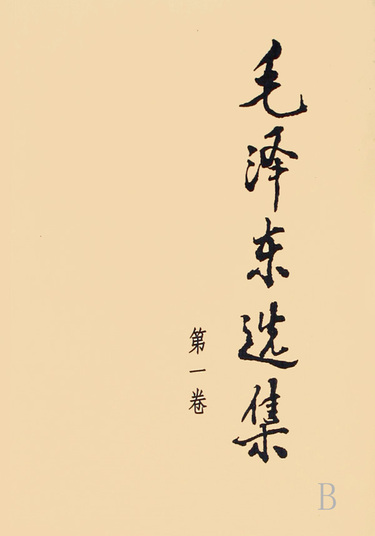 毛泽东选集
第一卷
B